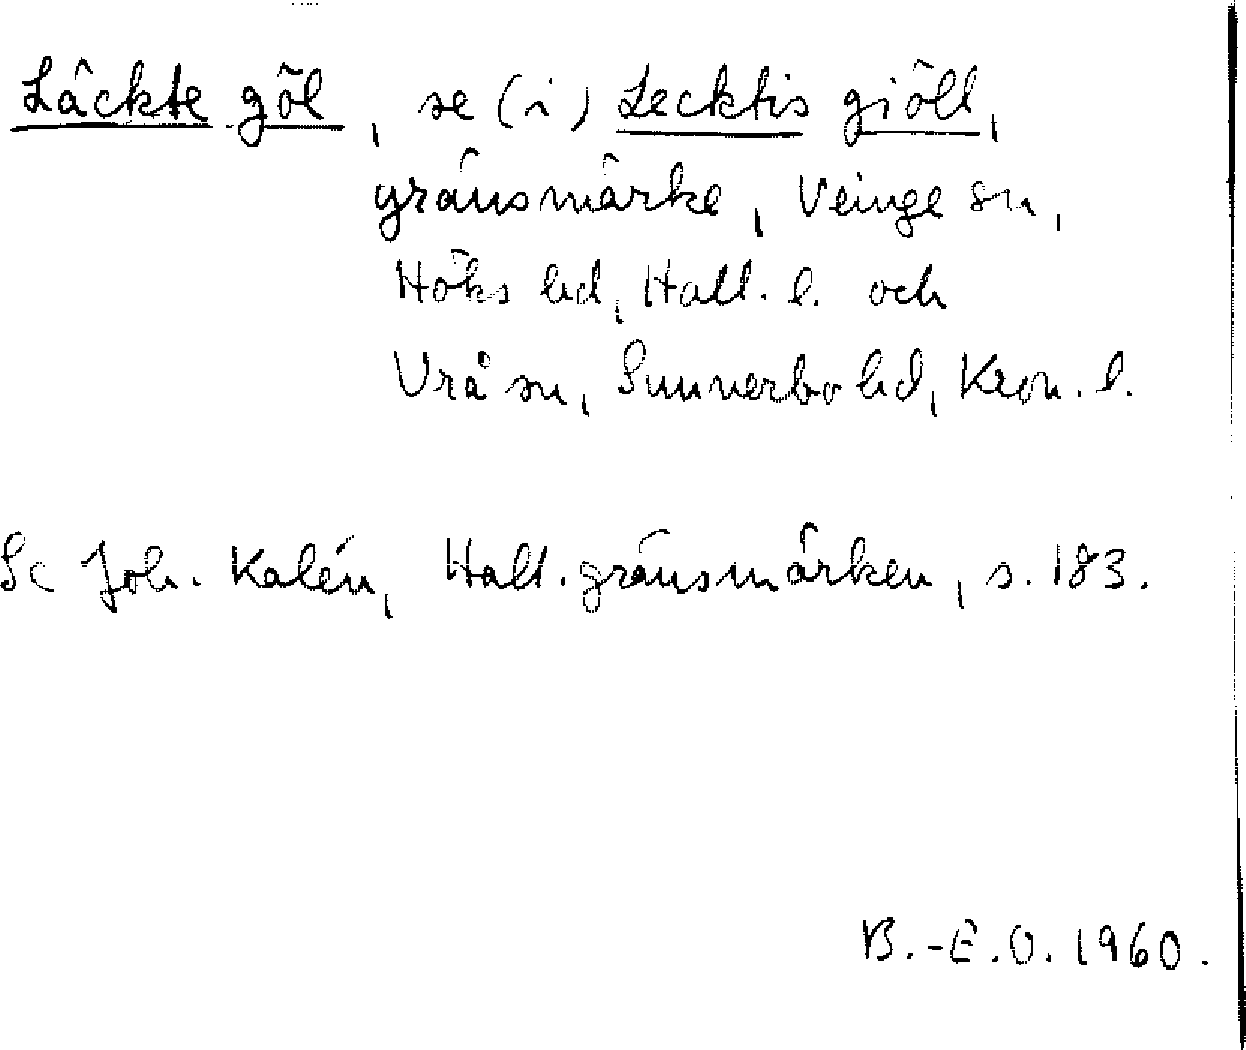 Läckte göl, se (i) Lecktis giöll,
gränsmärke, Veinge sn,
Höks hd, Hall. l. och
Vrå sn, Sunnerbo hd, Kron. l.
Se Joh. Kalén, Hall. gränsmärken, s. 183.
B.-E.O. 1960.